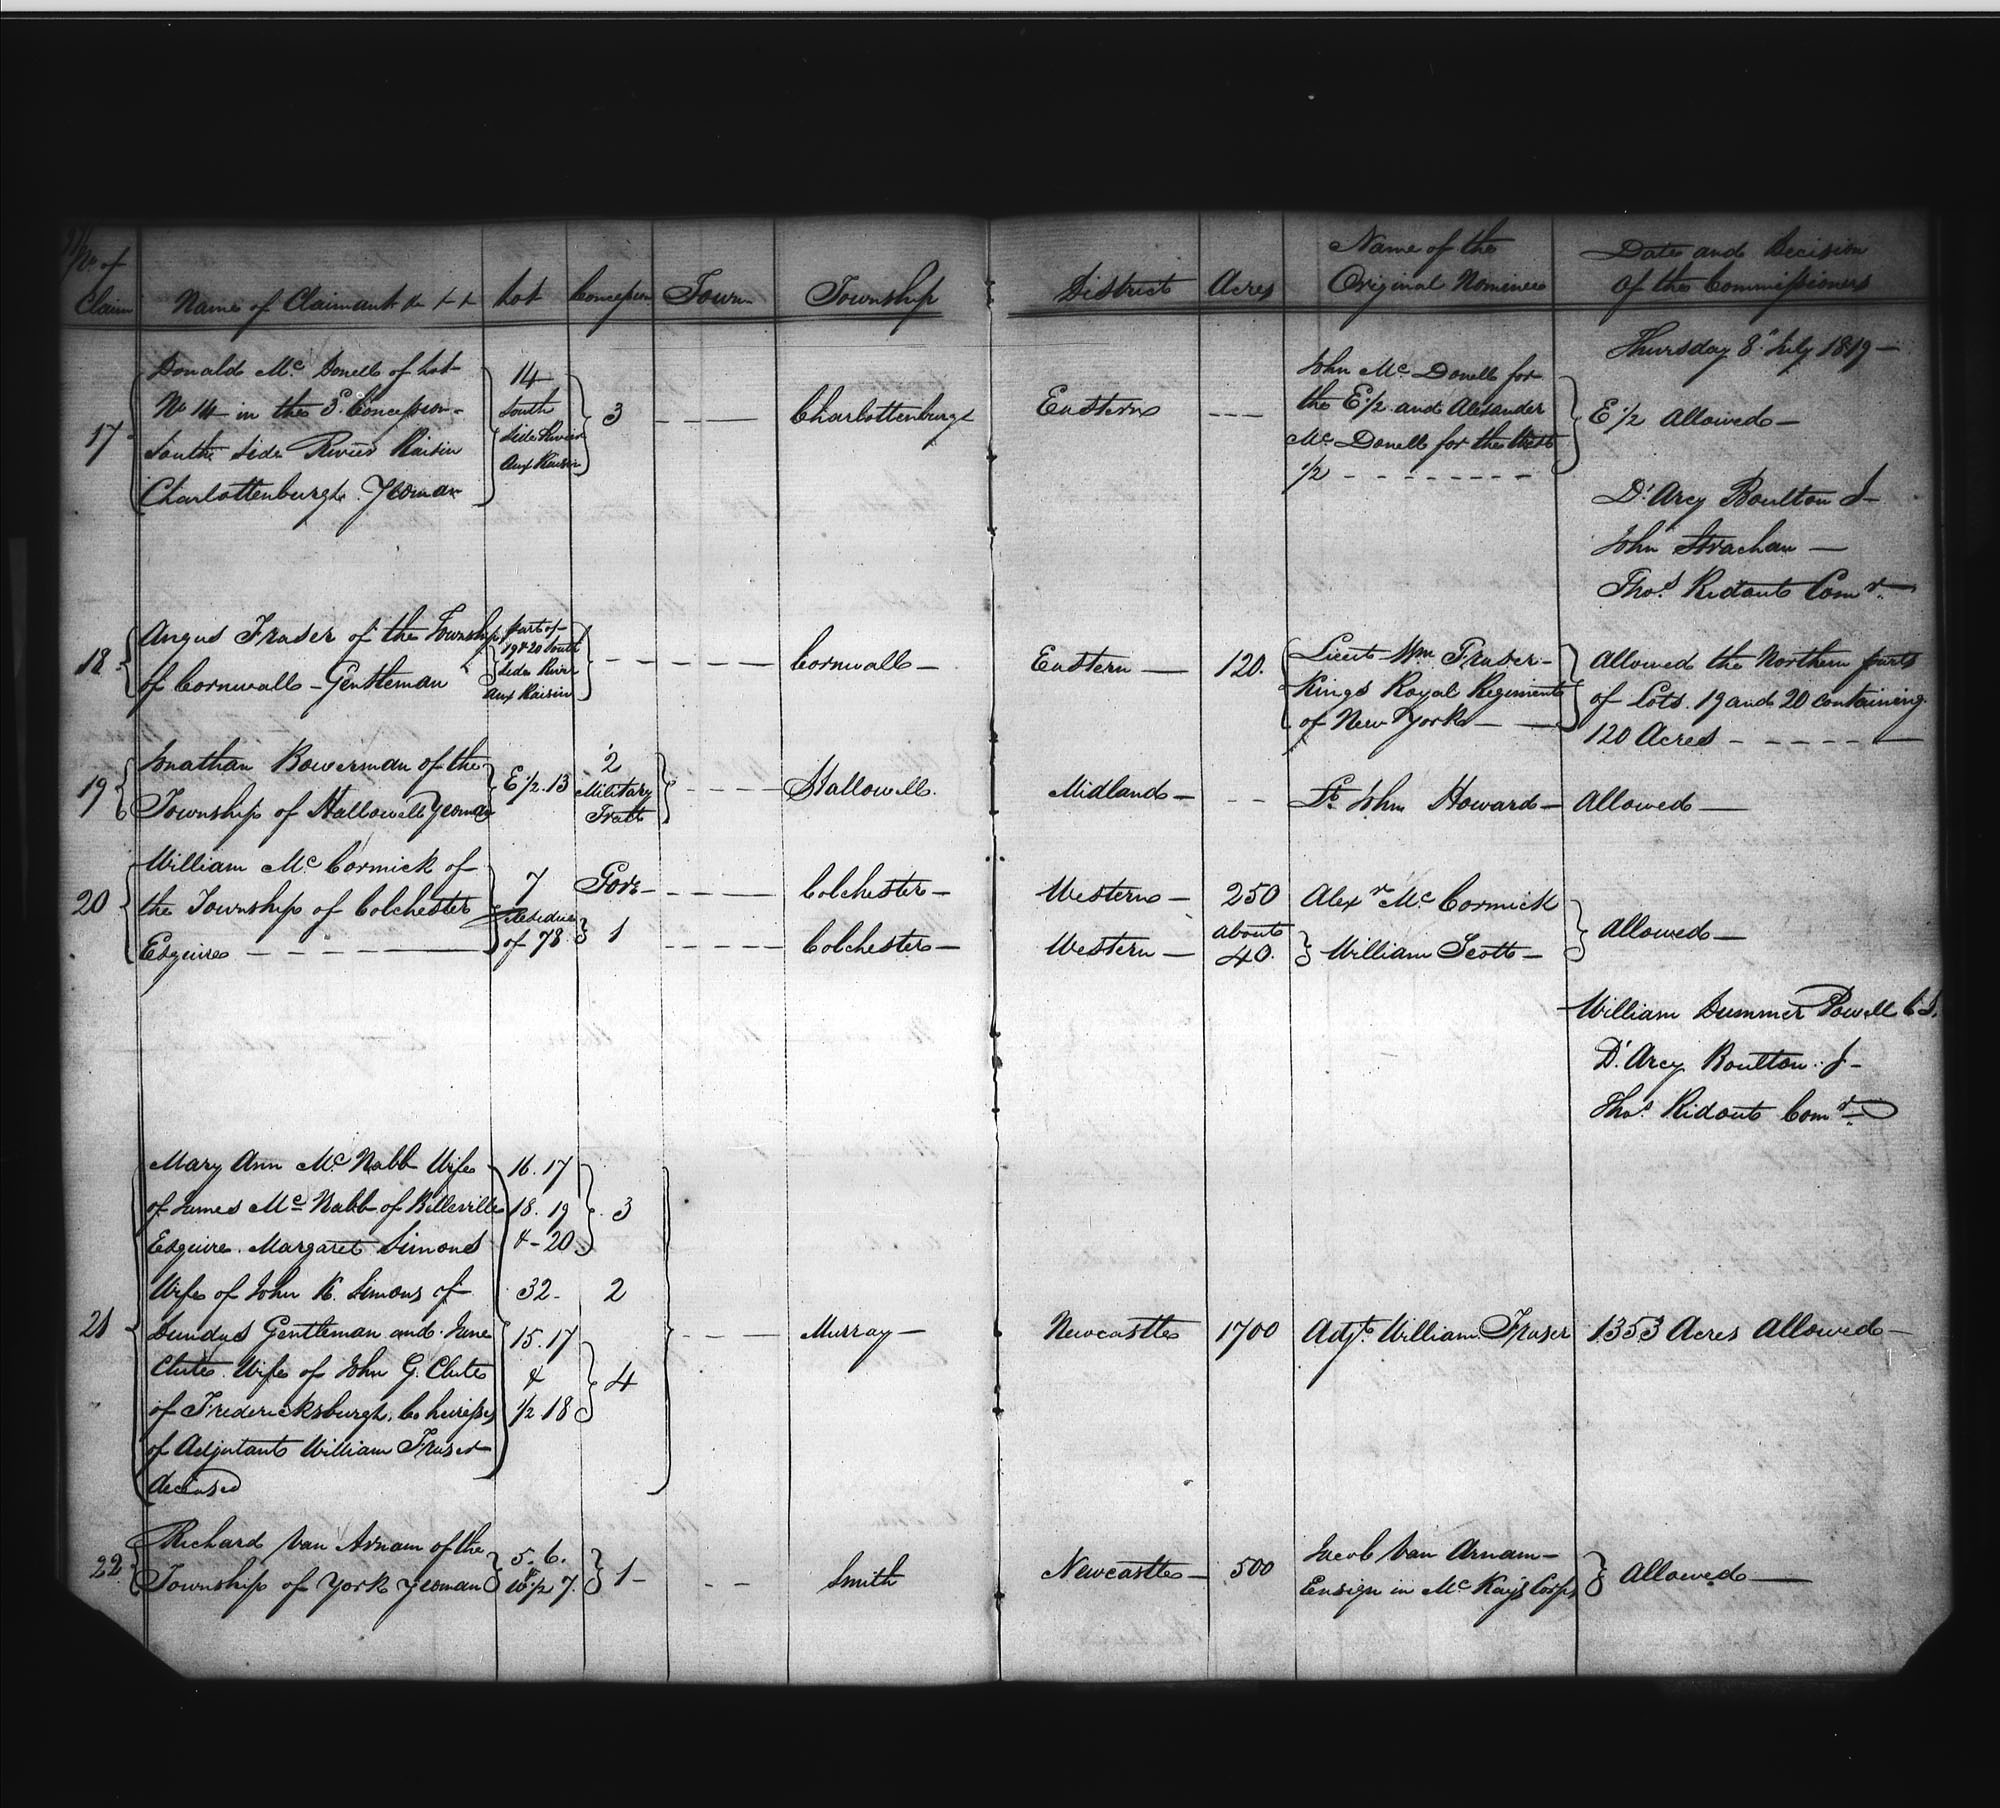 No. of Claim | Name of Claimant &c | Lot | Concession | Town | Township | District | Acres | Name of the Original Nominee | Date and Decision of the Commissioners
Thursday 8th July 1819 —
17
Donald Mc Donell of Lot
No 14 in the 3d Concession
South Side River Raisin
Charlottenburgh Yeoman
14
South
Side River
Aux Raisin
3
Charlottenburgh
Eastern
John Mc Donell for
the E 1/2 and Alexander
Mc Donell for the West
1/2
E 1/2 Allowed —
D'Arcy Boulton J —
John Strachan —
Thos. Ridout Comr.
18
Angus Fraser of the Township
of Cornwall — Gentleman
part of
19 & 20 South
Side River
Aux Raisin
Cornwall —
Eastern —
120.
Lieut Wm Fraser —
Kings Royal Regiment
of New York —
Allowed the Northern parts
of Lots 19 and 20 containing
120 Acres —
19
Jonathan Bowerman of the
Township of Hallowell Yeoman
E 1/2 . 13
2
Military
Tract
Hallowell.
Midland —
Lt. John Howard —
Allowed —
20
William Mc Cormick of
the Township of Colchester
Esquire
7
Residue
of 78
Gore
1
Colchester —
Colchester —
Western —
Western —
250
about
40.
Alexr Mc Cormick
William Scott —
Allowed —
William Dummer Powell C J.
D'Arcy Boulton. J —
Thos Ridout Comr
21
Mary Ann Mc Nabb Wife
of James Mc Nabb of Belleville
Esquire. Margaret Simons
Wife of John K. Simons of
Dundas Gentleman and Jane
Clute Wife of John G. Clute
of Fredericksburgh, Co heiresses
of Adjutant William Fraser
deceased
16. 17
18. 19
& — 20
32 —
15. 17
&
1/2 18
3
2
4
Murray —
Newcastle
1700
Adjt. William Fraser
1353 Acres Allowed —
22
Richard Van Arnam of the
Township of York Yeoman
5. 6.
& W 1/2 7.
1 —
Smith
Newcastle —
500
Jacob Van Arnam —
Ensign in Mc Kay's Corps
Allowed —